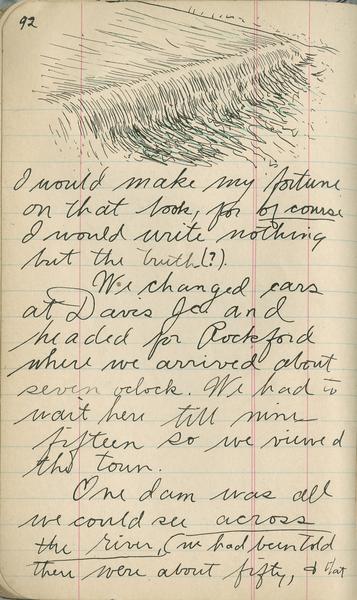 92
I would make my fortune
on that book, for of course
I would write nothing
but the truth(?).
We changed cars
at Davis Jc. and
headed for Rockford
where we arrived about
seven oclock. We had to
wait here till nine
fifteen so we viewed
the town.
One dam was all
we could see across
the river, (we had been told
there were about fifty, & that